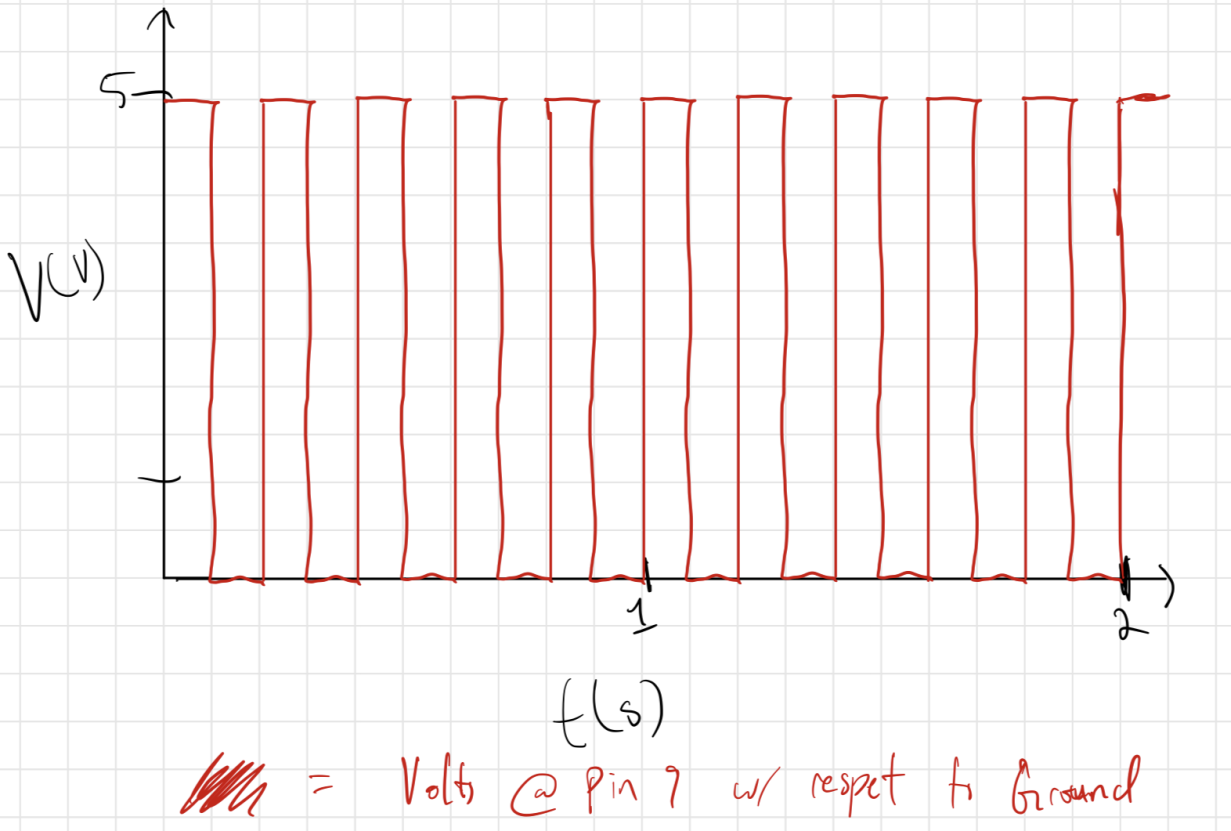 5
V(V)
1
2
t(s)
= Volts @ Pin 9 w/ respet to Ground